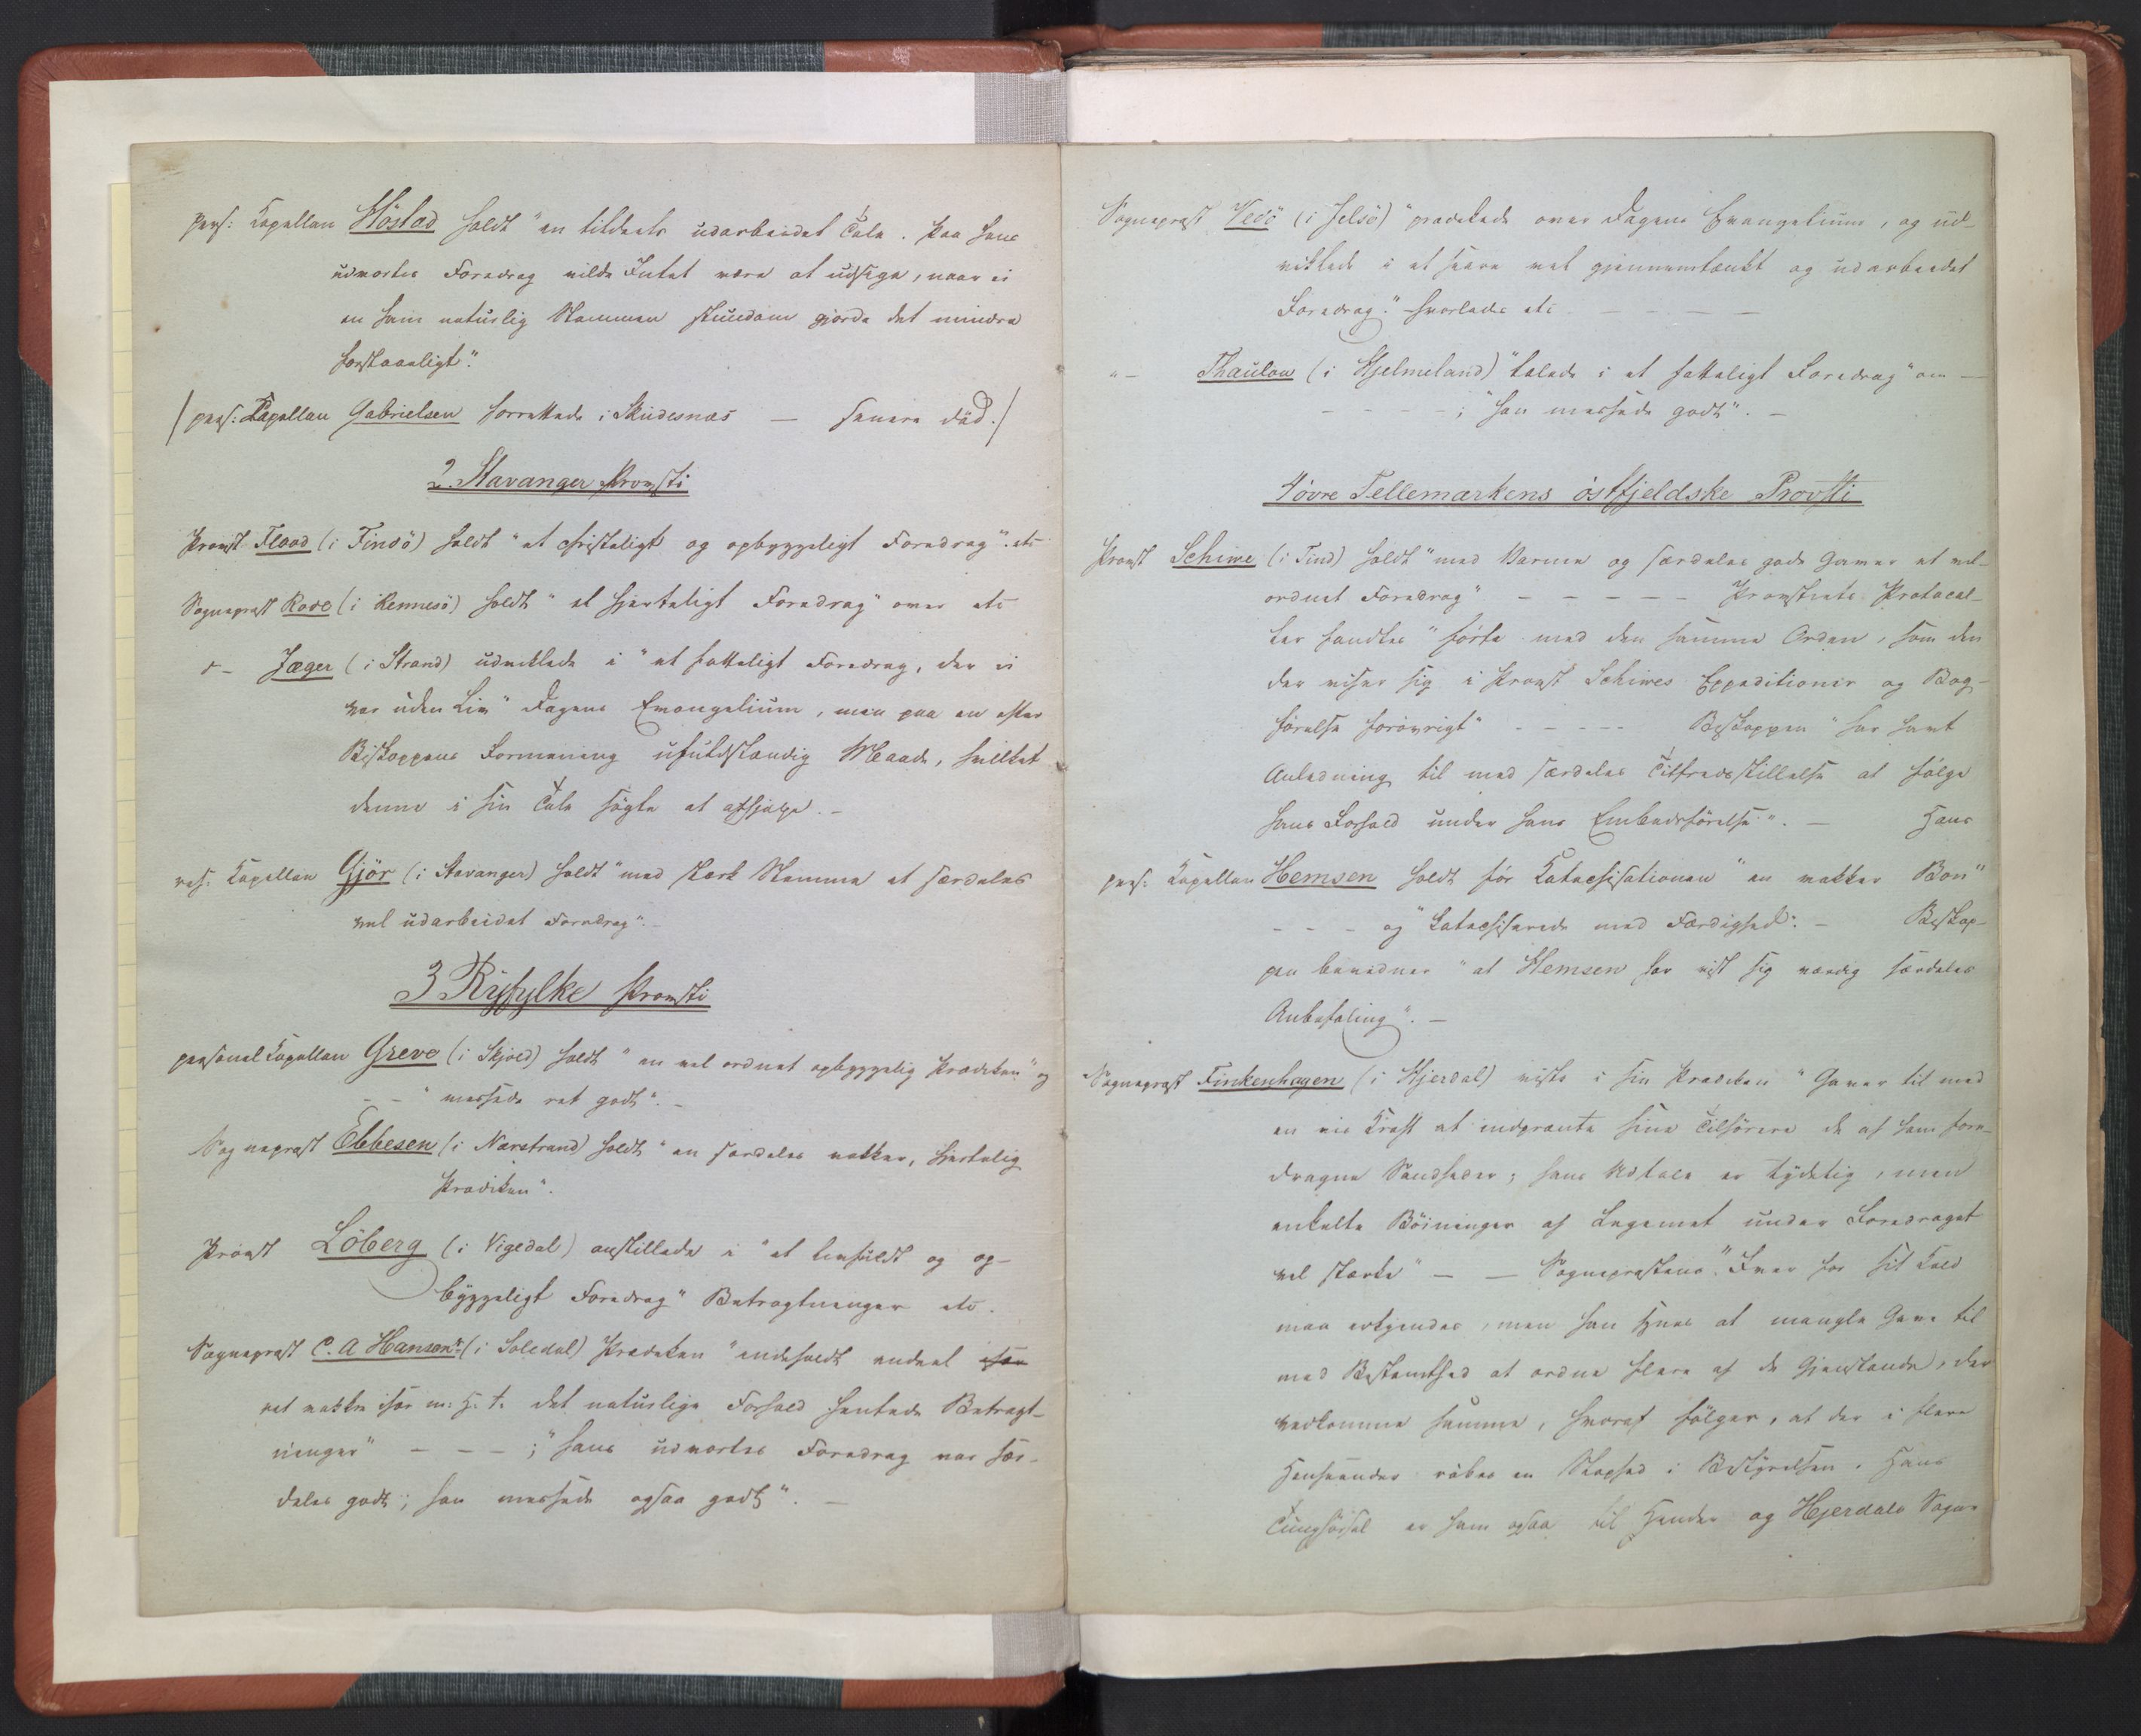 pers: Kapellan Höstad holdt "en tildeels udarbeidet Tale. Paa hans
udvortes Foredrag vilde Intet være at udsige, naar ei
en ham naturlig Stammen stundom gjorde det mindre
forstaaeligt."
/pers: Kapellan Gabrielsen forrettede i Skudesnæs — senere död./
2. Stavanger Provsti
Provst Flood (i Findö) holdt "et christeligt og opbyggeligt Foredrag". etc
Sognepræst Rode (i Rennesö) holdt "et hjerteligt Foredrag" over etc
"– Jæger (i Strand) udviklede i "et fatteligt Foredrag, der ei
var uden Liv" Dagens Evangelium, men paa en efter
Biskoppens Formening ufuldstændig Maade, hvilket
denne i sin Tale søgte at afhjælpe. –
res. Kapellan Gjör (i Stavanger) holdt "med stærk Stemme et særdeles
vel udarbeidet Foredrag". –
3 Ryfylke Provsti
personel Kapellan Greve (i Skjold) holdt "en vel ordnet opbyggelig Prædiken" og
– – "messede ret godt". –
Sognepræst Ebbesen (i Nærstrand) holdt "en særdeles vakker, hjertelig
Prædiken".
Provst Löberg (i Vigedal) anstillede i "et livfuldt og op-
byggeligt Foredrag" Betragtninger etc.
Sognepræst C. A Hansens (i Soledal) Prædiken "indeholdt endeel
ret vakkre især m: H: t. det naturlige Forhold hentede Betragt-
ninger" – – – ; "hans udvortes Foredrag var sær-
deles godt; han messede ogsaa godt". —
Sognepræst Vedö (i Jelsö) "prædikede over Dagens Evangelium, og ud-
viklede i et svære vel gjennemtænkt og udarbeidet
Foredrag." hvorledes etc – – – –
"– Thaulow (i Hjelmeland) "talede i et fatteligt Foredrag" om —
– – – – ; "han messede godt". –
4 övre Tellemarkens östfjeldske Provsti
Provst Schive (i Tind) holdt "med Varme og særdeles gode Gaver et vel-
ordnet Foredrag" – – – – – Provstiets Protocol-
ler fandtes "førte med den samme Orden, som den
der viser sig i Provst Schives Expeditioner og Bog-
førelse forövrigt" – – – – Biskoppen "har havt
Anledning til med særdeles Tilfredsstillelse at følge
hans Forhold under hans Embedsførelse". – Hans
pers: Kapellan Hemsen holdt før Katechisationen "en vakker Bøn"
– – – og "katechiserede med Færdighed". – Biskop-
pen bevidner "at Hemsen har vist sig værdig særdeles
Anbefaling". —
Sognepræst Finkenhagen (i Hjerdal) viste i sin Prædiken "Gaver til med
en vis Kraft at indprænte sine Tilhørere de af ham fore-
dragne Sandheder; hans Udtale er tydelig, men
enkelte Böininger af Legemet under Foredraget
vel stærke" — — Sognepræstens "Iver for sit Kald
maa erkjendes, men han synes at mangle Gave til
med Bestemthed at ordne flere af de Gjenstande, der
vedkomme samme, hvoraf følger, at der i flere
Henseender röbes en Slaphed i Bestyrelsen. Hans
Tunghörsel er ham ogsaa til Hinder og Hjerdals Sogne